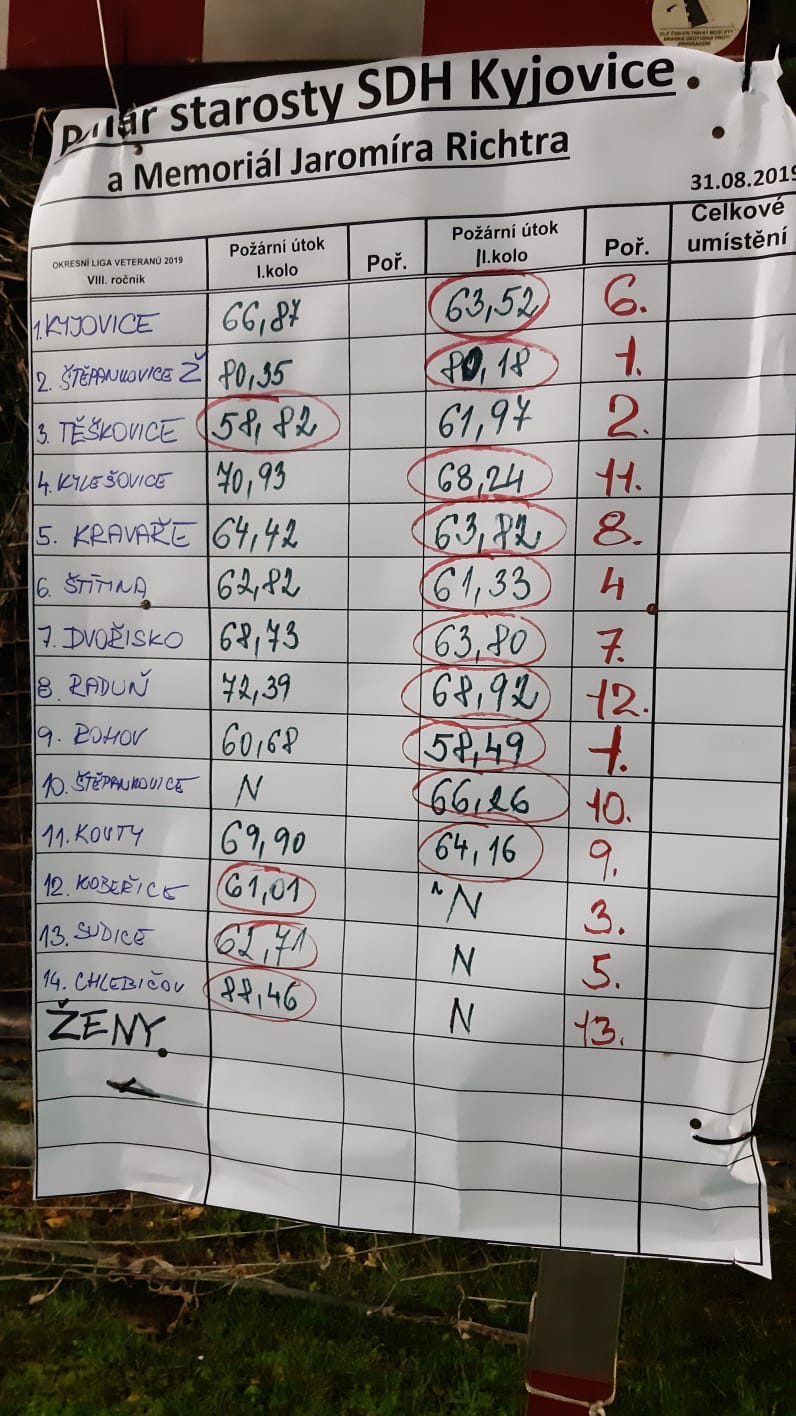 Pohár starosty SDH Kyjovice
a Memoriál Jaromíra Richtra
31.08.2019
OKRESNÍ LIGA VETERANŮ 2019 VIII. ročník Požární útok I.kolo Poř. Požární útok II.kolo Poř. Celkové umístění
1. KYJOVICE 66,87 63,52 6.
2. ŠTĚPANKOVICE Ž 80,35 80,18 1.
3. TĚŠKOVICE 58,82 61,97 2.
4. KYLEŠOVICE 70,93 68,24 11.
5. KRAVAŘE 64,42 63,82 8.
6. ŠTÍTINA 62,82 61,33 4
7. DVOŘISKO 68,73 63,80 7.
8. RADUŇ 72,39 68,92 12.
9. ROHOV 60,68 58,49 1.
10. ŠTĚPANKOVICE N 66,26 10.
11. KOUTY 69,90 64,16 9.
12. KOBEŘICE 61,01 N 3.
13. SUDICE 62,71 N 5.
14. CHLEBIČOV 88,46 N 13.
ŽENY